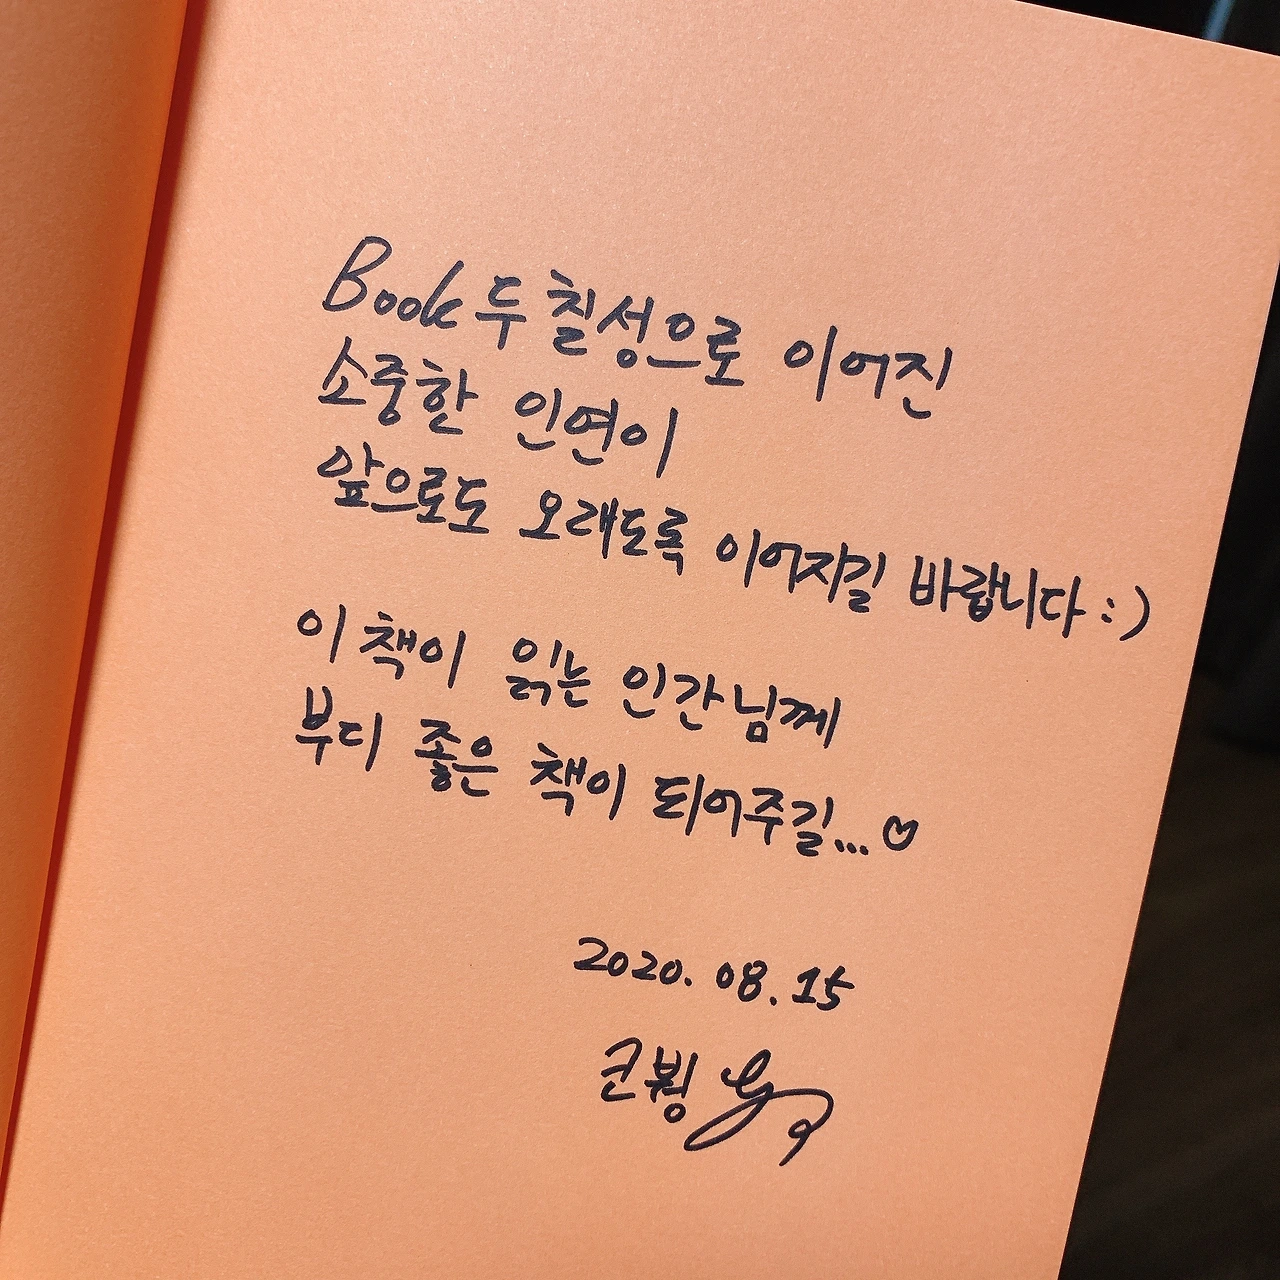 Book두칠성으로 이어진
소중한 인연이
앞으로도 오래도록 이어지길 바랍니다 :)
이 책이 읽는 인간님께
부디 좋은 책이 되어주길...♡
2020. 08. 15
코붱